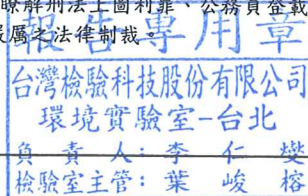 瞭解刑法上圖利罪、公務員登載
嚴厲之法律制裁。
報告專用章
台灣檢驗科技股份有限公司
環境實驗室-台北
負責人：李仁燮
檢驗室主管：葉峻榕